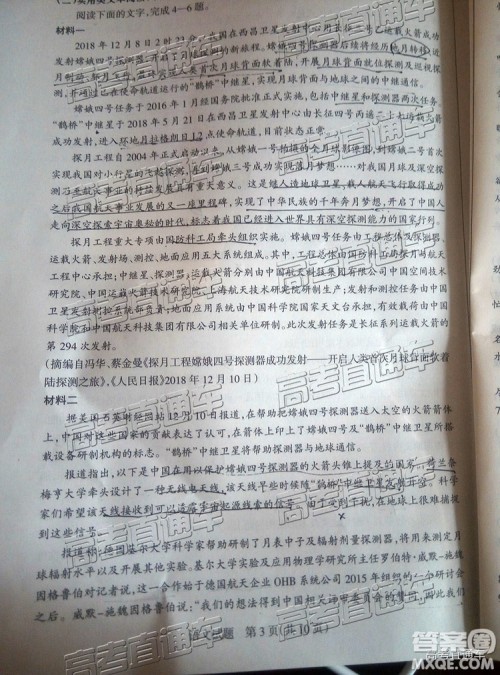 阅读下面的文字,完成4—6题。
材料一
2018年12月8日2时23分,我国在西昌卫星发射中心用长征三号乙运载火箭成功
发射嫦娥四号探测器,开启了月球探测的新旅程。嫦娥四号探测器后续将经历地月转移、近
月制动、环月飞行,最终实现人类首次月球背面软着陆,开展月球背面就位探测及巡视探
测,并通过已在使命轨道运行的“鹊桥”中继星,实现月球背面与地球之间的中继通信。
嫦娥四号任务于2016年1月经国务院批准正式实施,包括中继星和探测器两次任务。
“鹊桥”中继星于2018年5月21日在西昌卫星发射中心由长征四号丙遥二十七运载火箭
成功发射,进入环地月拉格朗日L2点使命轨道,目前状态正常。
探月工程自2004年正式启动以来,从嫦娥一号拍摄的全月球影像图,嫦娥二号首次
实现我国对小行星的飞越探测,到嫦娥三号成功实现落月梦想……对我国月球及深空探
测乃至航天事业的持续发展具有重大意义。这是继人造地球卫星、载人航天飞行取得成功
之后我国航天事业发展的又一座里程碑,实现了中华民族的千年奔月梦想,开启了中国人
走向深空探索宇宙奥秘的时代,标志着我国已经进入世界具有深空探测能力的国家行列。
探月工程重大专项由国防科工局牵头组织实施。嫦娥四号任务由工程总体及探测器、
运载火箭、发射场、测控、地面应用五大系统组成。其中,工程总体由国防科工局探月与航天
工程中心承担;中继星、探测器、运载火箭分别由中国航天科技集团有限公司中国空间技术
研究院、中国运载火箭技术研究院、上海航天技术研究院研制生产;发射和测控任务由中国
卫星发射测控系统部负责;地面应用系统由中国科学院国家天文台承担,有效载荷由中国
科学院和中国航天科技集团有限公司相关单位研制。此次发射任务是长征系列运载火箭的
第294次发射。
(摘编自冯华、蔡金曼《探月工程嫦娥四号探测器成功发射——开启人类首次月球背面软着
陆探测之旅》,《人民日报》2018年12月10日)
材料二
据英国石英财经网站12月10日报道,在帮助把嫦娥四号探测器送入太空的火箭箭体
上,中国对这些国家的贡献表达了认可,在箭体上印上了嫦娥四号及“鹊桥”中继卫星所搭
载设备研制机构的标志。“鹊桥”中继卫星将帮助探测器与地球通信。
报道指出,以下是中国在用以保护嫦娥四号探测器的火箭头锥上提及的国家。荷兰奈
梅亨大学牵头设计了一种无线电天线,该天线早些时候随“鹊桥”中继卫星发射升空。科学
家们希望该天线接收到可以追溯宇宙起源线索的信号。由于受到干扰,在地球上很难捕捉
到这些信号。
报道称,德国基尔大学科学家帮助研制了月表中子及辐射剂量探测器,将用来测定月
球辐射水平以及开展其他实验。基尔大学实验及应用物理学研究所主任罗伯特·威默-施魏
因格鲁伯对记者说,这一合作始于德国航天企业OHB系统公司2015年组织的一个研讨会
之后。威默-施魏因格鲁伯说:“我们的想法得到中国相关评审委员会的赞赏
语文试题 第3页(共10页)
高考直通车
高考直通车
高考直通车
答案圈
MXQE.COM